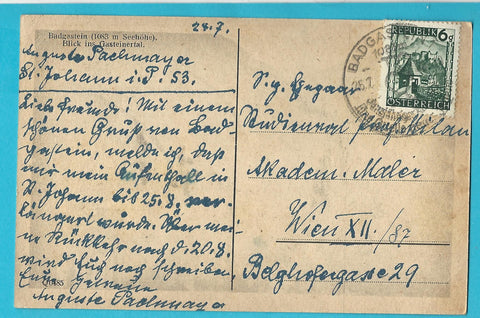 28.7.
Badgastein (1083 m Seehöhe).
Blick ins Gasteinertal.
Auguste Pachmayer
St. Johann i. P. 53.
Liebe Freunde! Mit einem
schönen Gruß von Bad-
gastein, melde ich, daß
mir mein Aufenthalt in
St. Johann bis 25.8. ver-
längert wurde. Über mei-
ne Rückkehr nach d. 20.8.
wird Euch noch schreiben
Eure
Auguste Pachmayer
REPUBLIK 6g
ÖSTERREICH
BADGAST
S. g. Ehepaar
Studienrat Milan
Akadem. Maler
Wien XII. /87
Belghofergasse 29